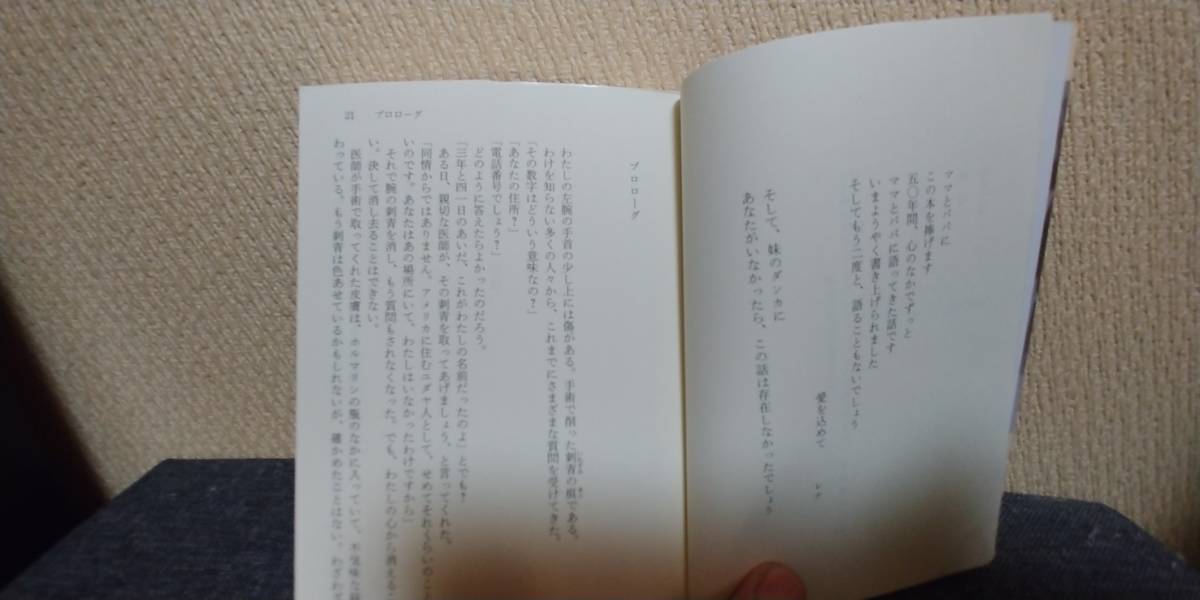 ママとパパに
この本を捧げます
五〇年間、心のなかでずっと
ママとパパに語ってきた話です
いまようやく書き上げられました
そしてもう二度と、語ることもないでしょう
愛を込めて
レナ
そして、妹のダンカに
あなたがいなかったら、この話は存在しなかったでしょう
21 プロローグ
プロローグ
わたしの左腕の手首の少し上には傷がある。手術で削った刺青の痕である。
わけを知らない多くの人々から、これまでにさまざまな質問を受けてきた。
「その数字はどういう意味なの？」
「あなたの住所？」
「電話番号でしょう？」
どのように答えたらよかったのだろう。
「三年と四一日のあいだ、これがわたしの名前だったのよ」とでも？
ある日、親切な医師が、その刺青を取ってあげましょう、と言ってくれた。
「同情からではありません。アメリカに住むユダヤ人として、せめてそれくらいのこ
いのです。あなたはあの場所にいて、わたしはいなかったわけですから」
それで腕の刺青を消し、もう質問もされなくなった。でも、わたしの心から消えるこ
い。決して消し去ることはできない。
医師が手術で取ってくれた皮膚は、ホルマリンの瓶のなかに入っていて、不気味な
わっている。もう刺青は色あせているかもしれないが、確かめたことはない。わざわ